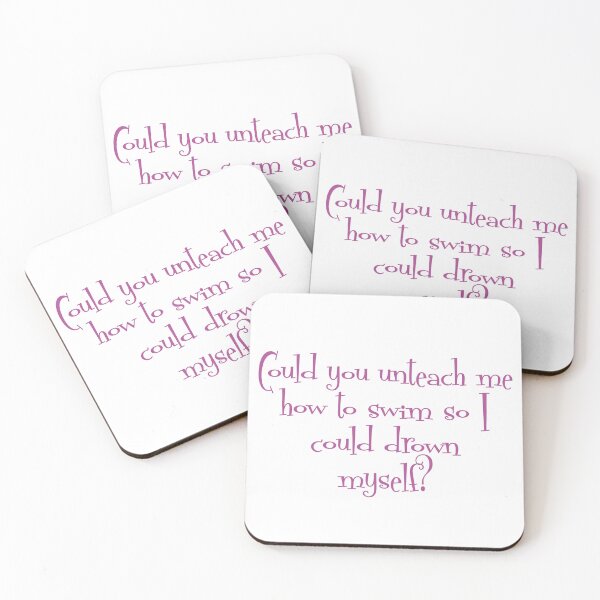 Could you unteach me
how to swim so
Could you unteach me
how to swim so I
could drown
Could you unteach me
how to swim so I
could drow
myself?
Could you unteach me
how to swim so I
could drown
myself?